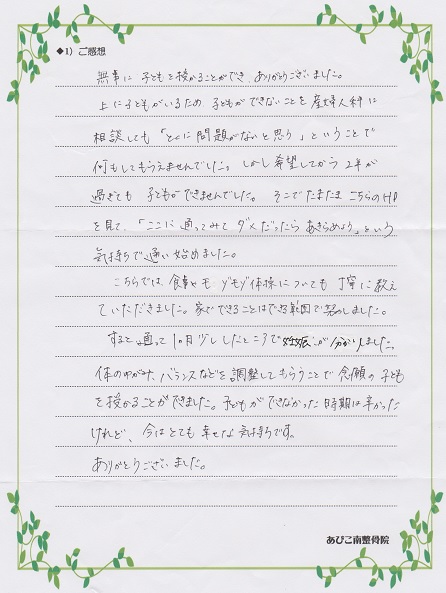 ◆1）ご感想
無事に子どもを授かることができ、ありがとうございました。
上に子どもがいるため子どもができないことを産婦人科に
相談しても「とくに問題がないと思う」ということで
何もしてもらえませんでした。しかし希望してから2年が
過ぎても子どもができませんでした。そこでたまたまこちらのHP
を見て、「ここに通ってみてダメだったらあきらめよう」という
気持ちで通い始めました。
こちらでは食事やモゾモゾ体操についても丁寧に教え
ていただきました。家でできることはできる範囲で努めしました。
すると通って1ヶ月少ししたところで妊娠が分かりました。
体のゆがみ、バランスなどを調整してもらうことで念願の子ども
を授かることができました。子どもができなかった時期は辛かった
けれど、今はとても幸せな気持ちです。
ありがとうございました。
あびこ南整骨院